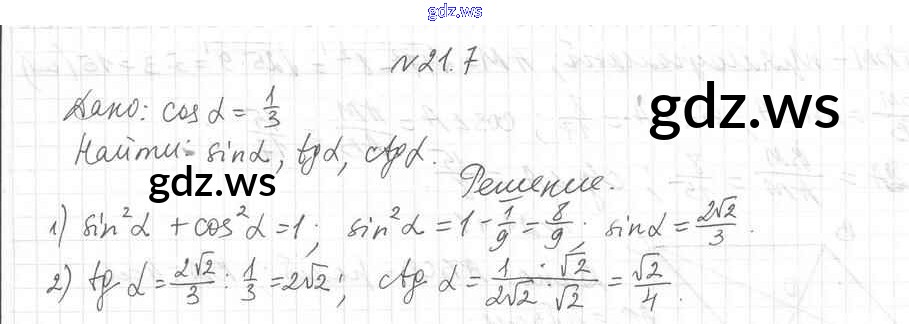 gdz.ws
№21.7
Дано: cos α = 1/3
gdz.ws
Найти: sinα, tgα, ctgα.
gdz.ws
Решение.
1) sin²α + cos²α = 1; sin²α = 1 - 1/9 = 8/9; sinα = 2√2/3.
2) tg α = 2√2/3 : 1/3 = 2√2; ctg α = 1·√2/2√2·√2 = √2/4.